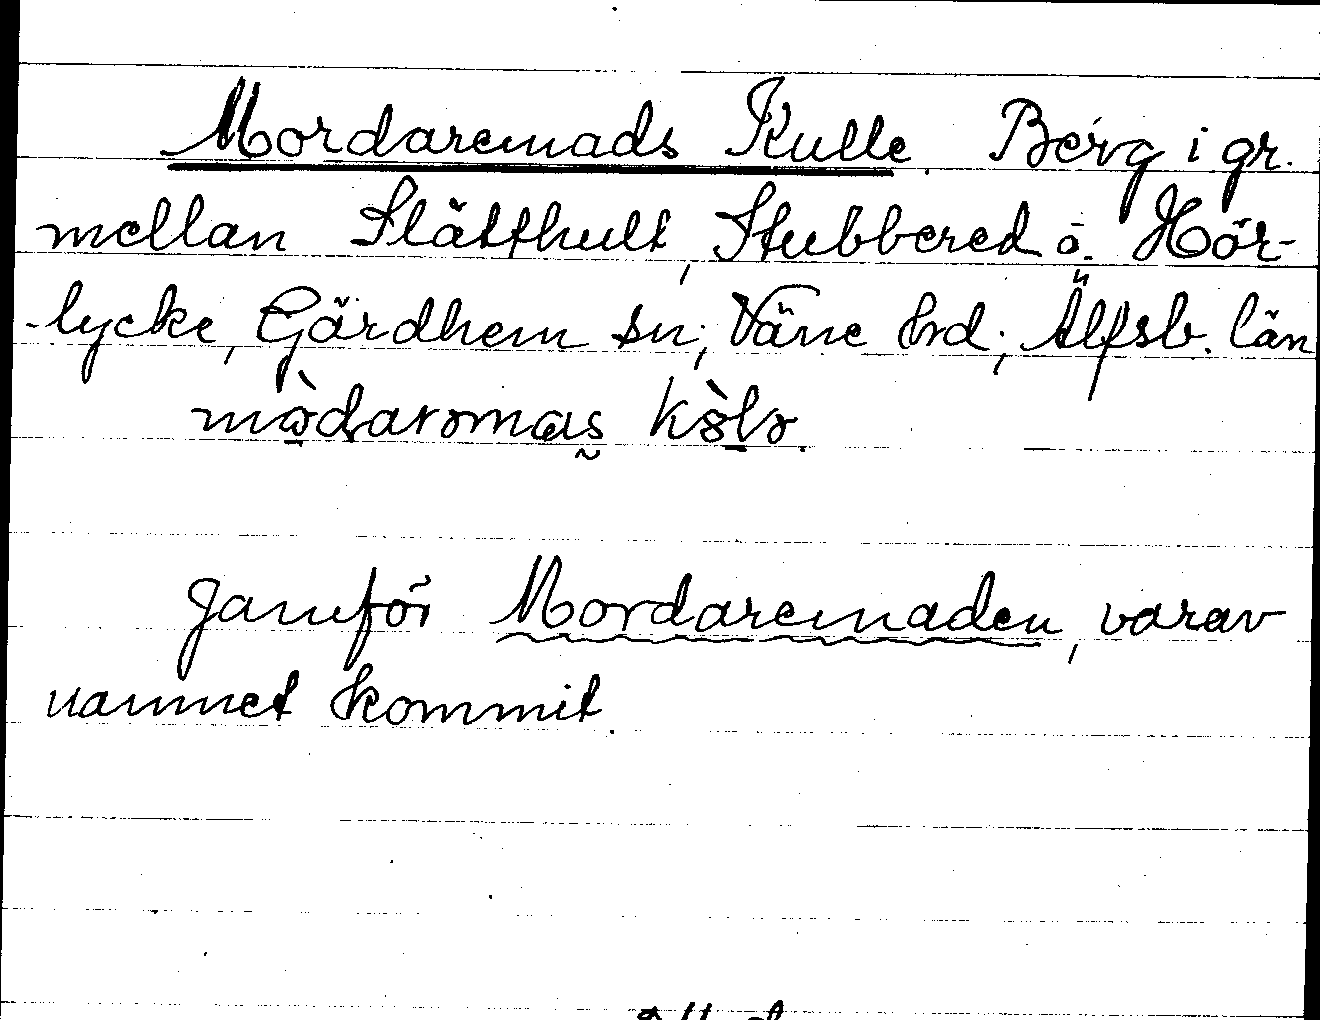 Mordaremads Kulle. Berg i gr.
mellan Slätthult, Stubbered o. Hör-
lycke, Gärdhem sn; Väne hrd; Älfsb. län
mòdarəmas kòlə.
Jämför Mordaremaden, varav
namnet kommit.